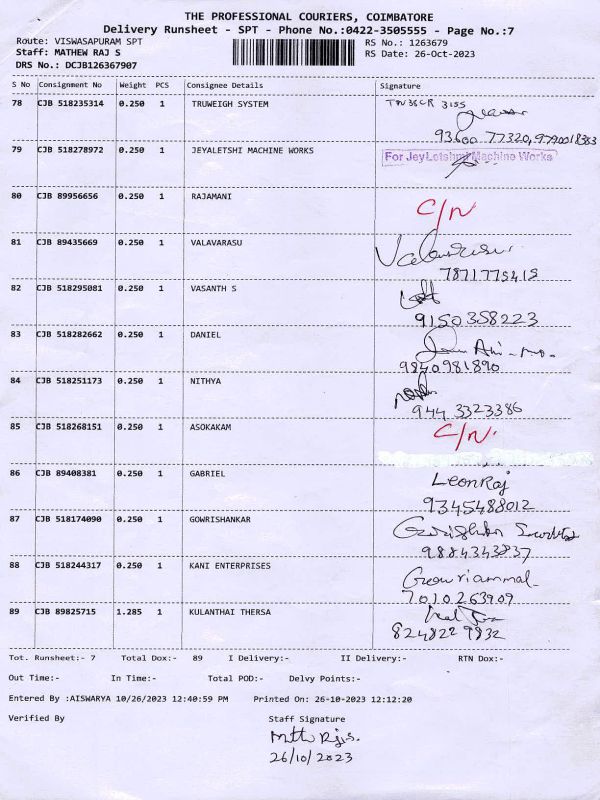 THE PROFESSIONAL COURIERS, COIMBATORE
Delivery Runsheet - SPT - Phone No.:0422-3505555 - Page No.:7
Route: VISWASAPURAM SPT RS No.: 1263679
Staff: MATHEW RAJ S RS Date: 26-Oct-2023
DRS No.: DCJB126367907
S No Consignment No Weight PCS Consignee Details Signature
78 CJB 518235314 0.250 1 TRUWEIGH SYSTEM
93600 77320, 9790018383
79 CJB 518278972 0.250 1 JEYALETSHI MACHINE WORKS For JeyLetshmi Machine Works
80 CJB 89956656 0.250 1 RAJAMANI C/N
81 CJB 89435669 0.250 1 VALAVARASU
7871775415
82 CJB 518295081 0.250 1 VASANTH S
9150358223
83 CJB 518282662 0.250 1 DANIEL
9840981890
84 CJB 518251173 0.250 1 NITHYA
944 3323386
85 CJB 518268151 0.250 1 ASOKAKAM C/N.
86 CJB 89408381 0.250 1 GABRIEL LeonRaj
9345488012
87 CJB 518174090 0.250 1 GOWRISHANKAR
9884343837
88 CJB 518244317 0.250 1 KANI ENTERPRISES Gowriammal
7010263909
89 CJB 89825715 1.285 1 KULANTHAI THERSA
8248229832
Tot. Runsheet:- 7 Total Dox:- 89 I Delivery:- II Delivery:- RTN Dox:-
Out Time:- In Time:- Total POD:- Delvy Points:-
Entered By :AISWARYA 10/26/2023 12:40:59 PM Printed On: 26-10-2023 12:12:20
Verified By Staff Signature
26/10/2023